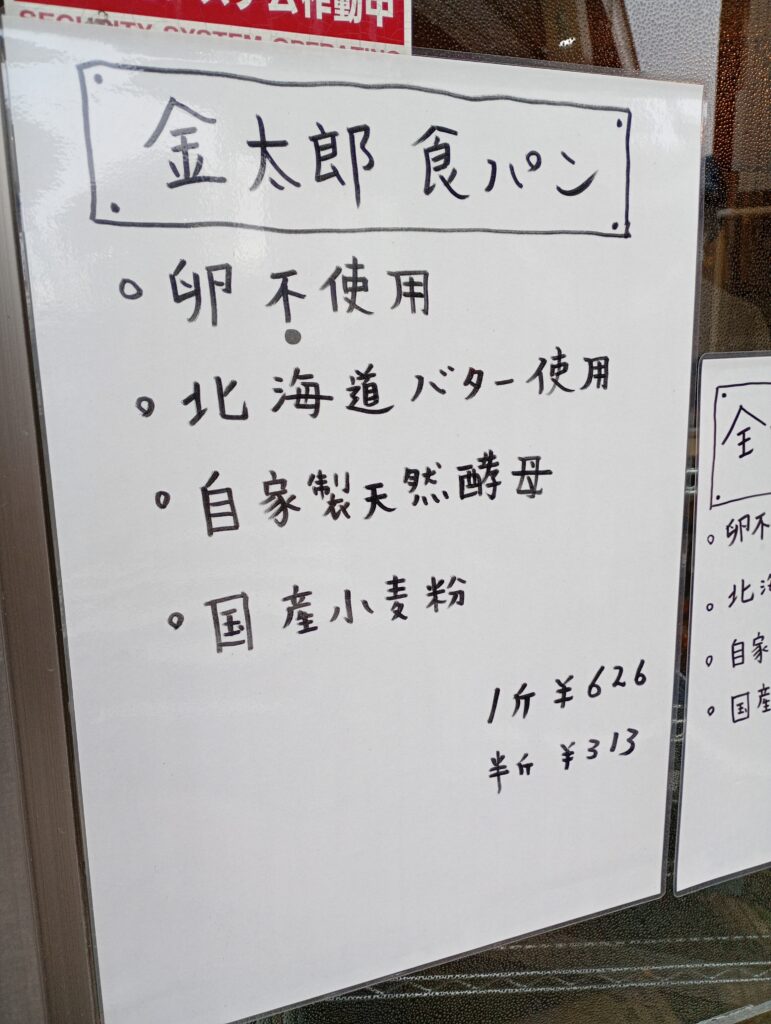 ステム作動中
SECURITY SYSTEM OPERATING
金太郎 食パン
○ 卵 不使用
○ 北海道バター使用
○ 自家製天然酵母
○ 国産小麦粉
1斤 ¥626
半斤 ¥313
金
○ 卵不
○ 北海
○ 自家
○ 国産